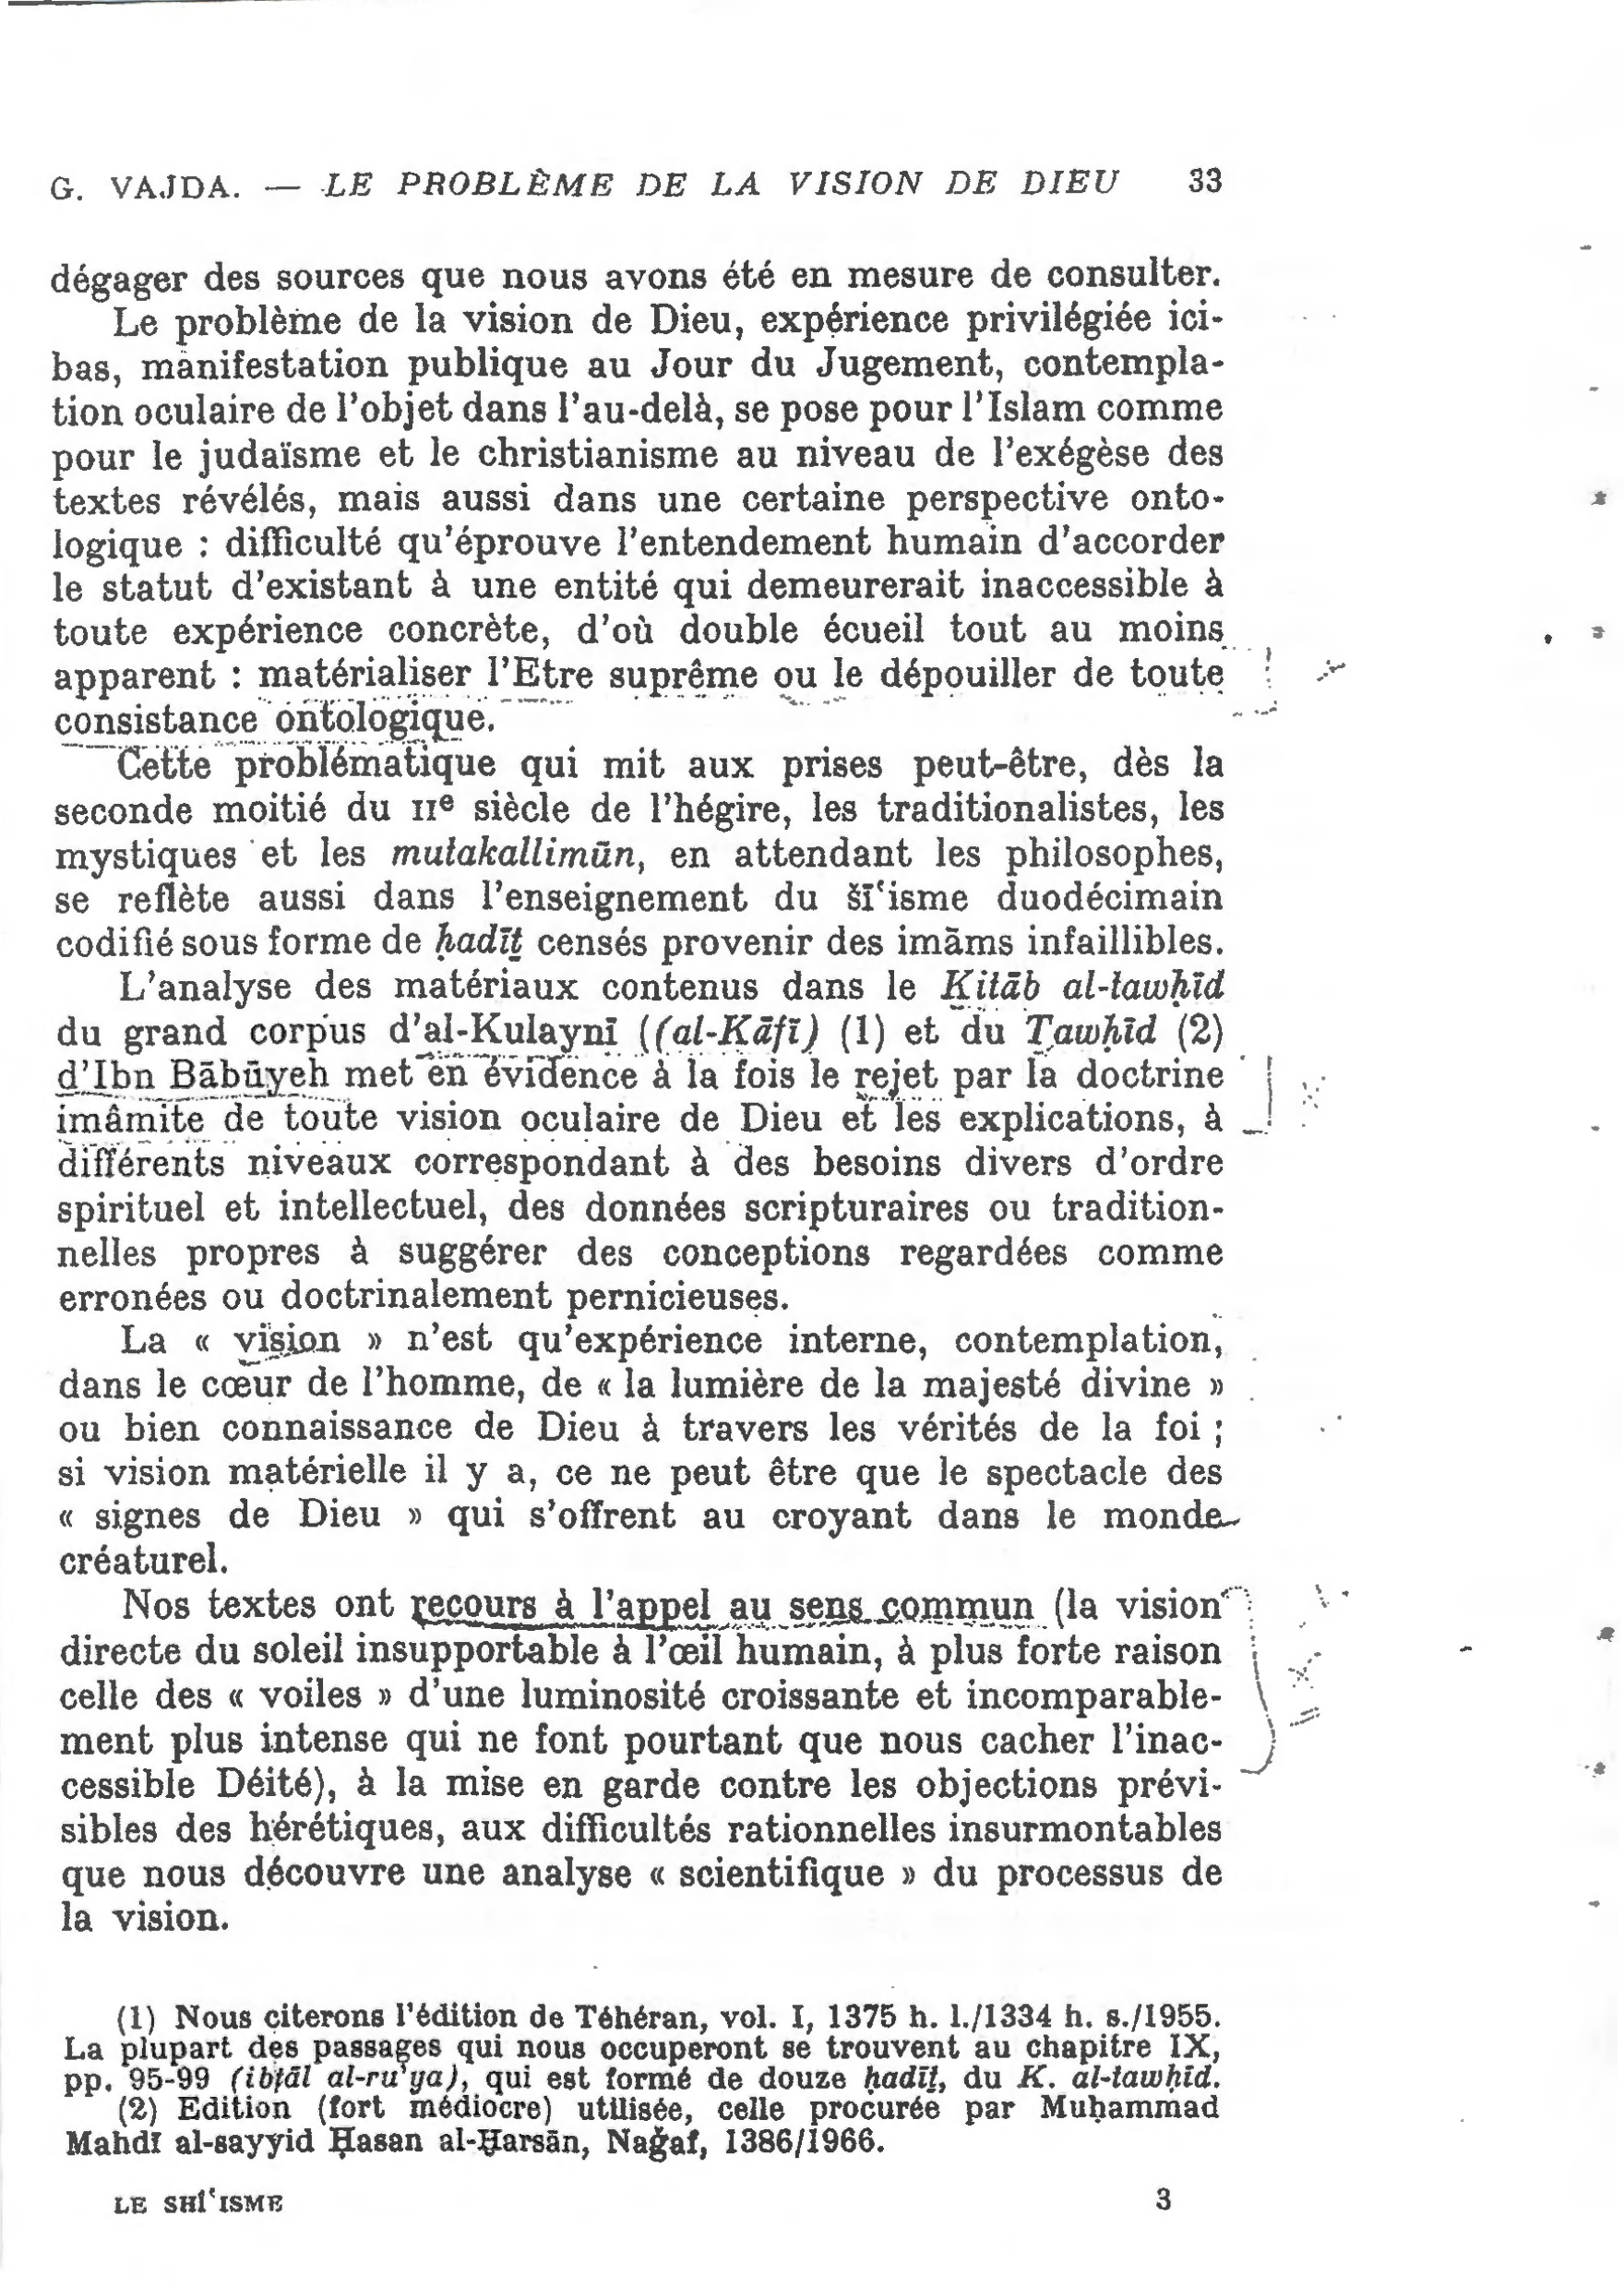 G. VAJDA. — LE PROBLÈME DE LA VISION DE DIEU 33
dégager des sources que nous avons été en mesure de consulter.
Le problème de la vision de Dieu, expérience privilégiée ici-
bas, manifestation publique au Jour du Jugement, contempla-
tion oculaire de l'objet dans l'au-delà, se pose pour l'Islam comme
pour le judaïsme et le christianisme au niveau de l'exégèse des
textes révélés, mais aussi dans une certaine perspective onto-
logique : difficulté qu'éprouve l'entendement humain d'accorder
le statut d'existant à une entité qui demeurerait inaccessible à
toute expérience concrète, d'où double écueil tout au moins
apparent : matérialiser l'Etre suprême ou le dépouiller de toute
consistance ontologique.
Cette problématique qui mit aux prises peut-être, dès la
seconde moitié du IIe siècle de l'hégire, les traditionalistes, les
mystiques et les mutakallimūn, en attendant les philosophes,
se reflète aussi dans l'enseignement du šīʿisme duodécimain
codifié sous forme de ḥadīṯ censés provenir des imāms infaillibles.
L'analyse des matériaux contenus dans le Kitāb al-tawḥīd
du grand corpus d'al-Kulaynī ((al-Kāfī) (1) et du Tawḥīd (2)
d'Ibn Bābūyeh met en évidence à la fois le rejet par la doctrine
imâmite de toute vision oculaire de Dieu et les explications, à
différents niveaux correspondant à des besoins divers d'ordre
spirituel et intellectuel, des données scripturaires ou tradition-
nelles propres à suggérer des conceptions regardées comme
erronées ou doctrinalement pernicieuses.
La « vision » n'est qu'expérience interne, contemplation,
dans le cœur de l'homme, de « la lumière de la majesté divine »
ou bien connaissance de Dieu à travers les vérités de la foi ;
si vision matérielle il y a, ce ne peut être que le spectacle des
« signes de Dieu » qui s'offrent au croyant dans le monde
créaturel.
Nos textes ont recours à l'appel au sens commun (la vision
directe du soleil insupportable à l'œil humain, à plus forte raison
celle des « voiles » d'une luminosité croissante et incomparable-
ment plus intense qui ne font pourtant que nous cacher l'inac-
cessible Déité), à la mise en garde contre les objections prévi-
sibles des hérétiques, aux difficultés rationnelles insurmontables
que nous découvre une analyse « scientifique » du processus de
la vision.
(1) Nous citerons l'édition de Téhéran, vol. I, 1375 h. l./1334 h. s./1955.
La plupart des passages qui nous occuperont se trouvent au chapitre IX,
pp. 95-99 (ibṭāl al-ru'ya), qui est formé de douze ḥadīṯ, du K. al-tawḥīd.
(2) Edition (fort médiocre) utilisée, celle procurée par Muḥammad
Mahdī al-sayyid Ḥasan al-Ḫarsān, Naǧaf, 1386/1966.
LE SHÎʿISME 3